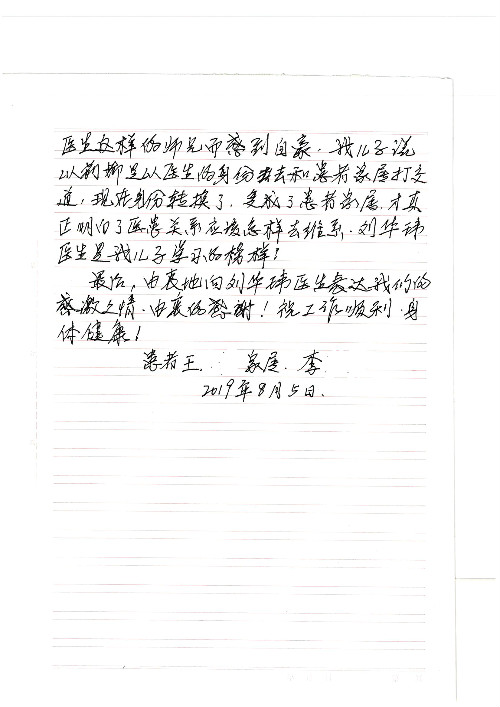 医生这样的师兄而感到自豪。我儿子说
以前都是以医生的身份去和患者家属打交
道，现在身份转换了，变成了患者家属，才真
正明白了医患关系应该怎样去维系。刘华玮
医生是我儿子学习的榜样！
最后，由衷地向刘华玮医生表达我们的
感激之情，由衷的感谢！祝工作顺利，身
体健康！
患者王 家属：李
2019年8月5日.